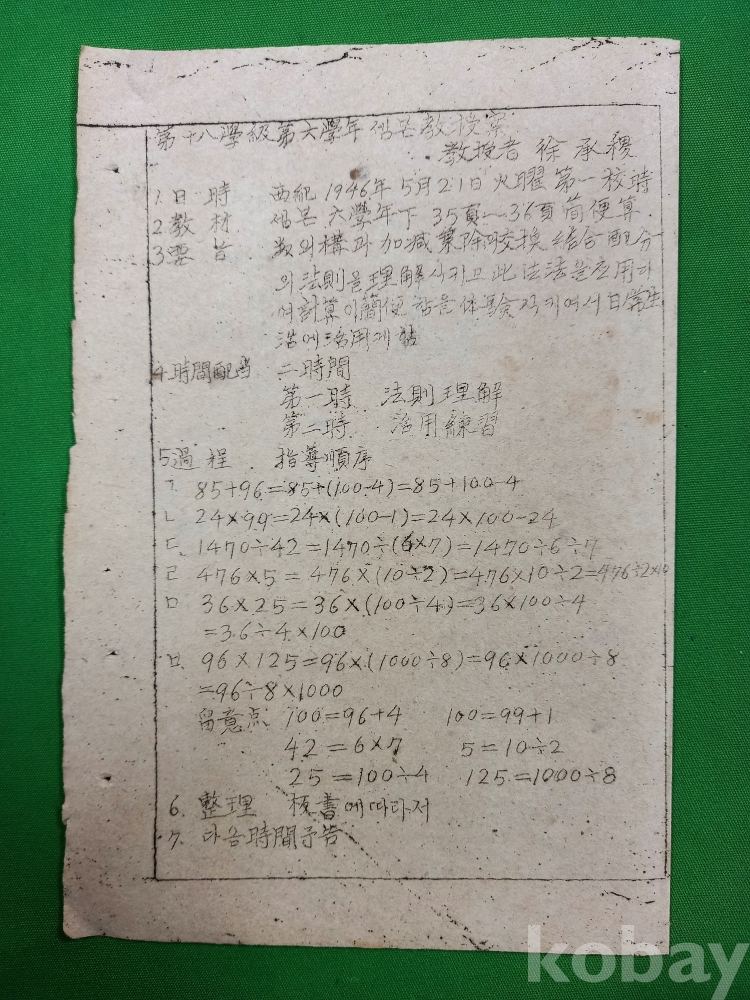 第十八學級第六學年 셈본教授案
教授者 徐承稷
1. 日時 西紀 1946年 5月 21日 火曜 第一校時
2 教材 셈본 六學年下 35頁-36頁 簡便算
3 要旨 數의 構과 加減乗除 交換 結合 配分
의 法則을 理解시키고 此 法을 応用하
여 計算이 簡便함을 体験시키여서 日常生
活에 活用케 함
4 時間配当 二時間
第一時 法則理解
第二時 活用練習
5 過程 指導順序
ㄱ 85+96=85+(100-4)=85+100-4
ㄴ 24×99=24×(100-1)=24×100-24
ㄷ 1470÷42=1470÷(6×7)=1470÷6÷7
ㄹ 476×5=476×(10÷2)=476×10÷2=476÷2×10
ㅁ 36×25=36×(100÷4)=36×100÷4
=36÷4×100
ㅂ 96×125=96×(1000÷8)=96×1000÷8
=96÷8×1000
留意点 100=96+4 100=99+1
42=6×7 5=10÷2
25=100÷4 125=1000÷8
6. 整理 板書에따라저
7. 다음時間予告
kobay